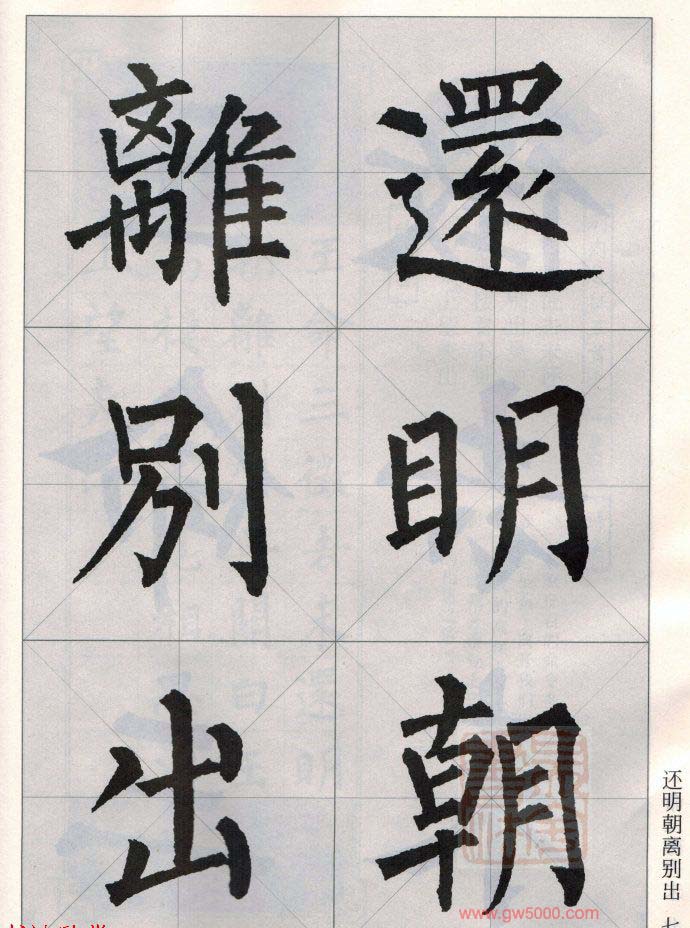 還明朝
離別出
还明朝离别出 七
www.gw5000.com